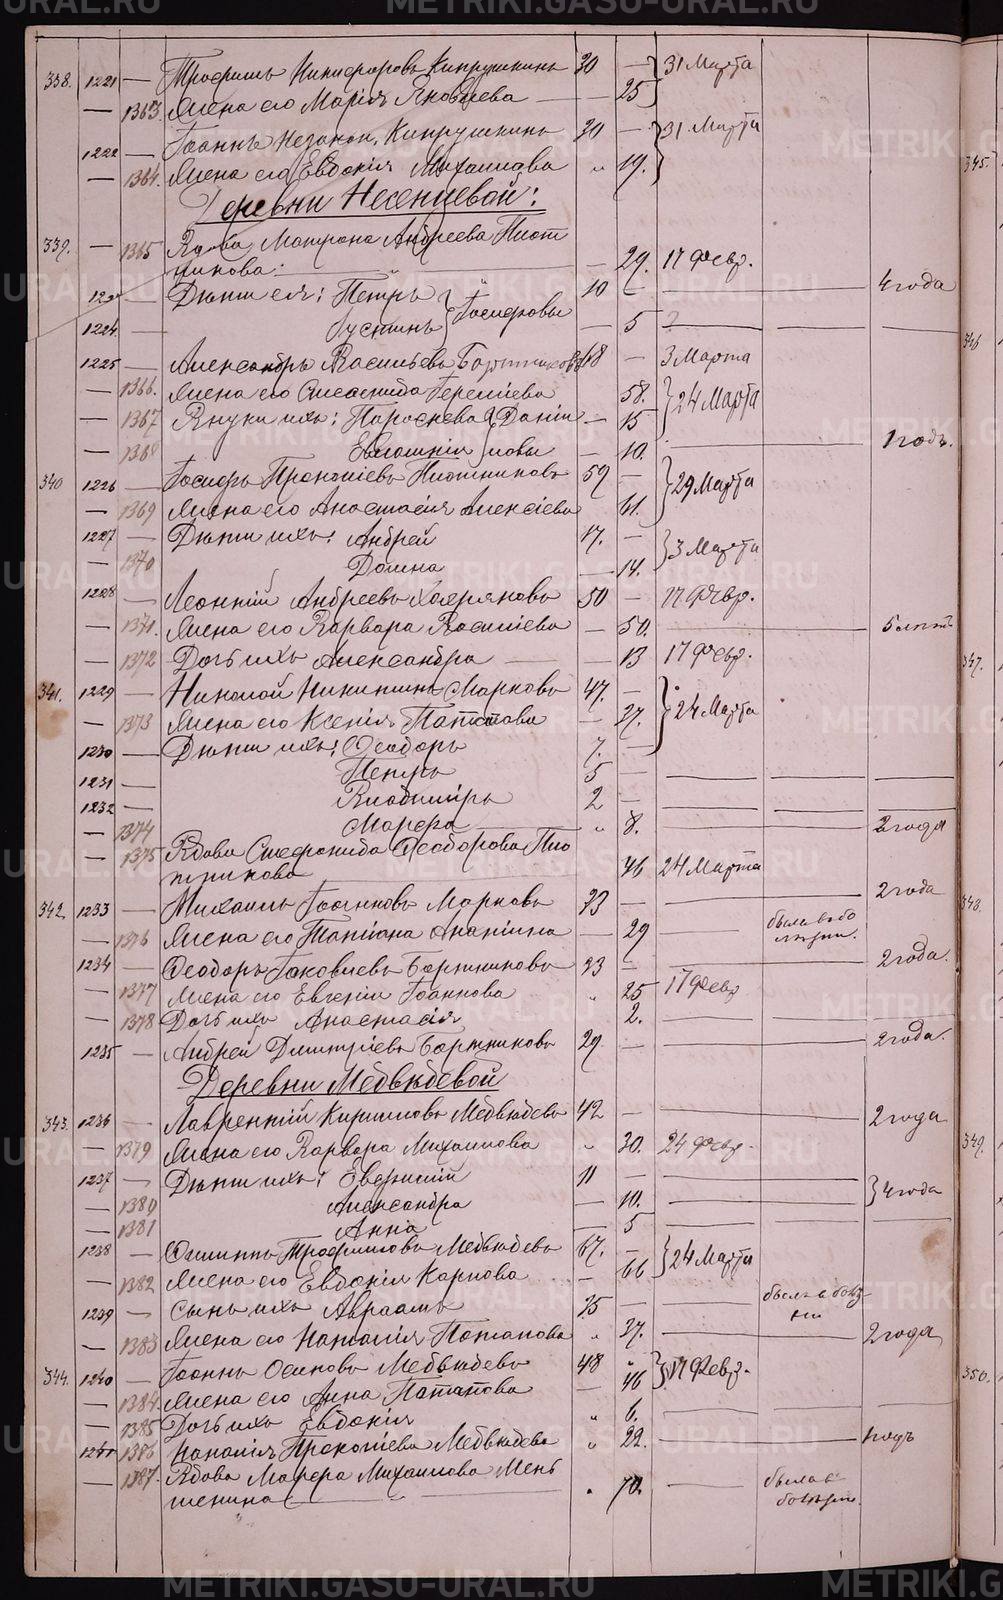 338. 1221 — Трофимъ Никифоровъ Кипрушкинъ 30 — } 31 Марта
— 1363. Жена его Марія Яковлева — 25
1222 — Іоаннъ Незакон. Кипрушкинъ 20 — } 31 Марта
— 1364. Жена его Евдокія Михаилова „ 19.
Деревни Несенцевой:
339. — 1365 Вдова Матрона Андреева Плот
никова: — 29. 17 Февр.
— Дѣти ея: Петръ } Іосифовы 10 — — — 4 года
1224 — Іустинъ — 5
1225 — Александръ Васильевъ Бортниковъ 68 — 3 Марта
— 1366. Жена его Степанида 58. } 24 Марта
— 1367 Внуки ихъ: Параскева } Данiи — 15
— 1368 ловы — 10. — 1 годъ.
340 1226 — Іосифъ Прокопіевъ Плотниковъ 59 — } 29 Марта
— 1369 Жена его Анастасія Алексіева 61.
1227 — Дѣти ихъ: Андрей 17. — } 3 Марта
— 1370 Домна — 14.
1228 — Леонтій Андреевъ 50 — 17 Февр.
— 1371. Жена его Варвара Василіева — 50. — 5 лѣтъ
— 1372 Дочь ихъ Александра — 13 17 Февр.
341. 1229 — Николай Никитинъ Марковъ 47. — } 24 Марта
— 1373 Жена его Ксенія Патапова — 27.
1230 — Дѣти ихъ: Ѳеодоръ 7. —
1231 — Петръ 5 — — — —
1232 — Владиміръ 2 — — — —
— 1374 Марфа „ 8. — 2 года
— 1375 Вдова Стефанида Ѳеодорова Пло
тникова 46 24 Марта
342. 1233 — Михаилъ Іоанновъ Марковъ 33 — — 2 года
— 1376 Жена его Татіана Ананіина — 29 — была въ бо
лѣзни.
1234 — Ѳеодоръ Іаковлевъ Бортниковъ 23 — — 2 года.
— 1377 Жена его Евгенія Іоаннова „ 25 17 Февр
— 1378 Дочь ихъ Анастасія 2. — — —
1235 — Андрей Димитріевъ Бортниковъ 29 — — 2 года.
Деревни Медвѣдевой
343. 1236 — Лаврентій Кириловъ Медвѣдевъ 42 — — — 2 года
— 1379 Жена его Варвара Михаилова „ 30. 24 Февр.
1237 — Дѣти ихъ: Евфимій 11 — — } 4 года
— 1380 Александра — 10. —
— 1381 Анна — 5 — — —
1238 — Филиппъ Трофимовъ Медвѣдевъ 67. — } 24 Марта
— 1382 Жена его Евдокія Карпова — 66
1239 — Сынъ ихъ Авраамъ 35 — — былъ въ болѣз
ни
— 1383 Жена его Наталія Потапова „ 37. — 2 года
344. 1240 — Іоаннъ Осиповъ Медвѣдевъ 48 „ } 17 Февр.
— 1384. Жена его Анна Патапова — 46
— 1385 Дочь ихъ Евдокія „ 6. — — —
1386 Наталія Прокопіева Медвѣдева „ 22. — годъ
— 1387. Вдова Марфа Михаилова Мень
шенина — 70. — была въ
болѣзни.
345.
346
347.
348.
349.
350.
METRIKI.GASO-URAL.RU